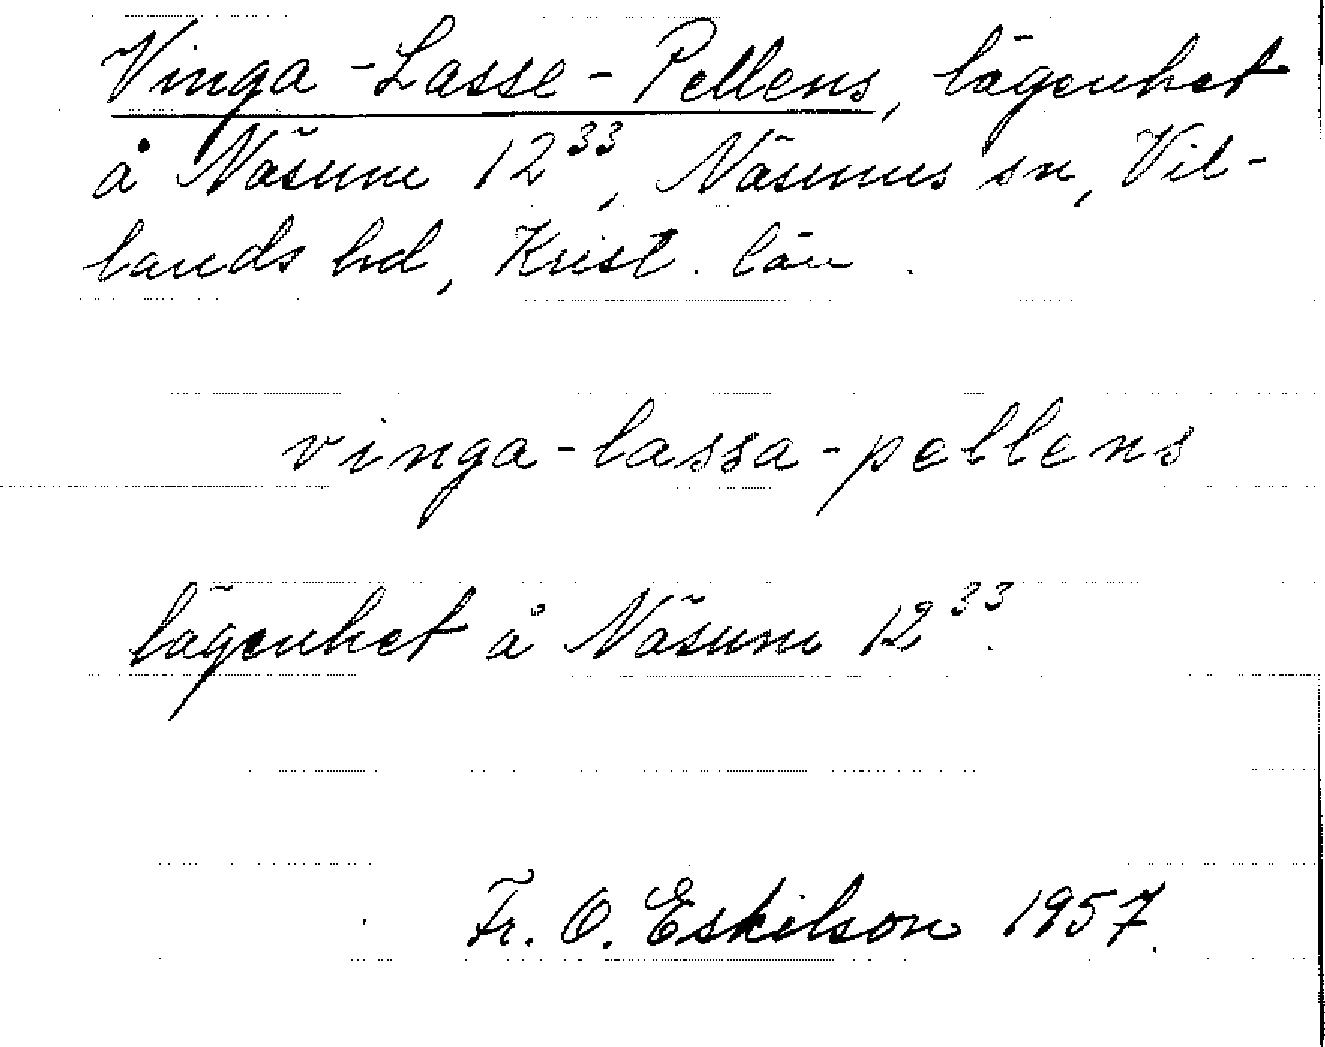 Vinga-Lasse-Pellens, lägenhet
å Näsum 12³³, Näsums sn, Vil-
lands hd, Krist. län.
vinga-lassa-pellens
lägenhet å Näsum 12³³.
Fr. O. Eskilson 1957.